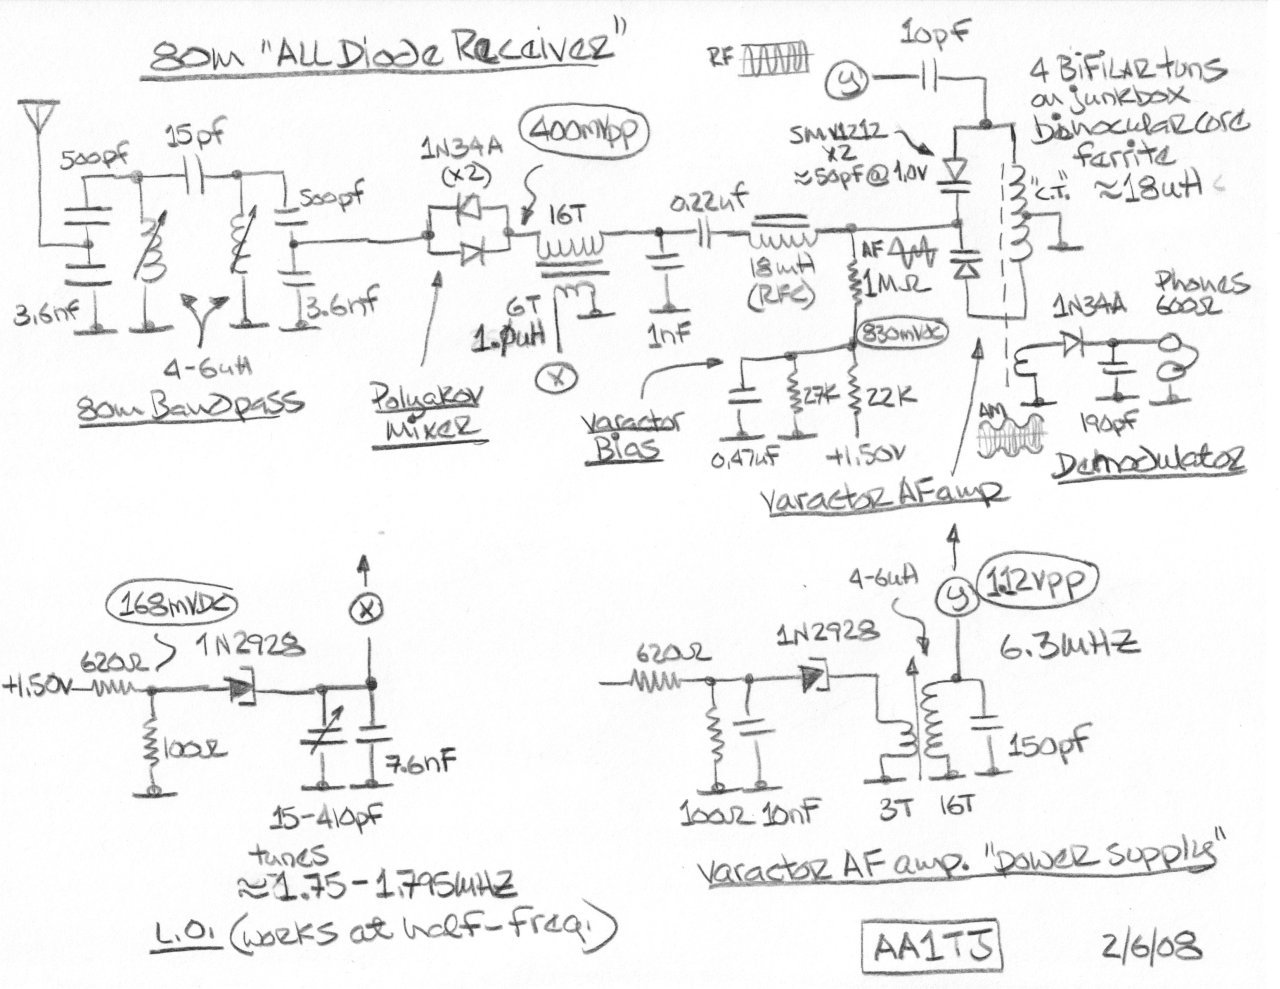 80m "ALL Diode Receiver"
RF
y
10pF
4 BiFiLAR turns
on junkbox
binocular core
ferrite
≈18uH
"C.T."
SMV1212
x2
≈50pF@1.0V
500pf
15pf
500pf
3.6nf
3.6nf
4-6uH
80m Bandpass
1N34A
(x2)
400mVpp
16T
6T
1.0uH
X
Polyakov
Mixer
1nF
0.22uf
18mH
(RFC)
AF
1MΩ
830mVDC
27K
22K
0.47uF
+1.50V
Varactor
Bias
Varactor AF amp
1N34A
Phones
600Ω
190pf
AM
Demodulator
168mVDC
+1.50V
620Ω
1N2928
X
100Ω
7.6nF
15-410pf
tunes
≈1.75-1.795MHZ
L.O. (works at half-freq.)
620Ω
1N2928
4-6uH
y
1.12Vpp
6.3MHZ
150pf
100Ω 10nF
3T 16T
Varactor AF amp. "power supply"
AA1TJ
2/6/08